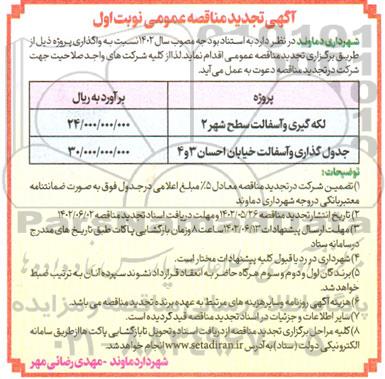 آگهی تجدید مناقصه عمومی نوبت اول
شهرداری دماوند در نظر دارد به استناد بودجه مصوب سال ۱۴۰۲ نسبت به واگذاری پروژه ذیل از
طریق برگزاری تجدید مناقصه عمومی اقدام نماید. لذا از کلیه شرکت های واجد صلاحیت جهت
شرکت در تجدید مناقصه دعوت به عمل می آید.
پروژه برآورد به ریال
لکه گیری و آسفالت سطح شهر ۲ ۲۴/۰۰۰/۰۰۰/۰۰۰
جدول گذاری و آسفالت خیابان احسان ۳ و ۴ ۳۰/۰۰۰/۰۰۰/۰۰۰
توضیحات:
۱) تضمین شرکت در تجدید مناقصه معادل ۵٪ مبلغ اعلامی در جدول فوق به صورت ضمانتنامه
معتبر بانکی در وجه شهرداری دماوند
۲) تاریخ انتشار تجدید مناقصه ۱۴۰۲/۰۵/۲۶ و مهلت دریافت اسناد تجدید مناقصه ۱۴۰۲/۰۶/۰۲
۳) مهلت ارسال پیشنهادات ۱۴۰۲/۰۶/۱۳ ساعت ۸ و زمان بازگشایی پاکات طبق تاریخ های مندرج
در سامانه ستاد
۴) شهرداری در رد یا قبول کلیه پیشنهادات مختار است.
۵) برندگان اول و دوم و سوم هرگاه حاضر به انعقاد قرارداد نشوند سپرده آنان به ترتیب ضبط
خواهد شد.
۶) هزینه آگهی روزنامه و سایر هزینه های مرتبط به عهده برنده تجدید مناقصه می باشد.
۷) سایر اطلاعات و جزئیات در اسناد تجدید مناقصه قید گردیده است.
۸) کلیه مراحل برگزاری تجدید مناقصه از دریافت اسناد و تحویل تا بازگشایی پاکت ها از طریق سامانه
الکترونیکی دولت (ستاد) به آدرس www.setadiran.ir انجام خواهد شد.
شهردار دماوند - مهدی رضائی مهر